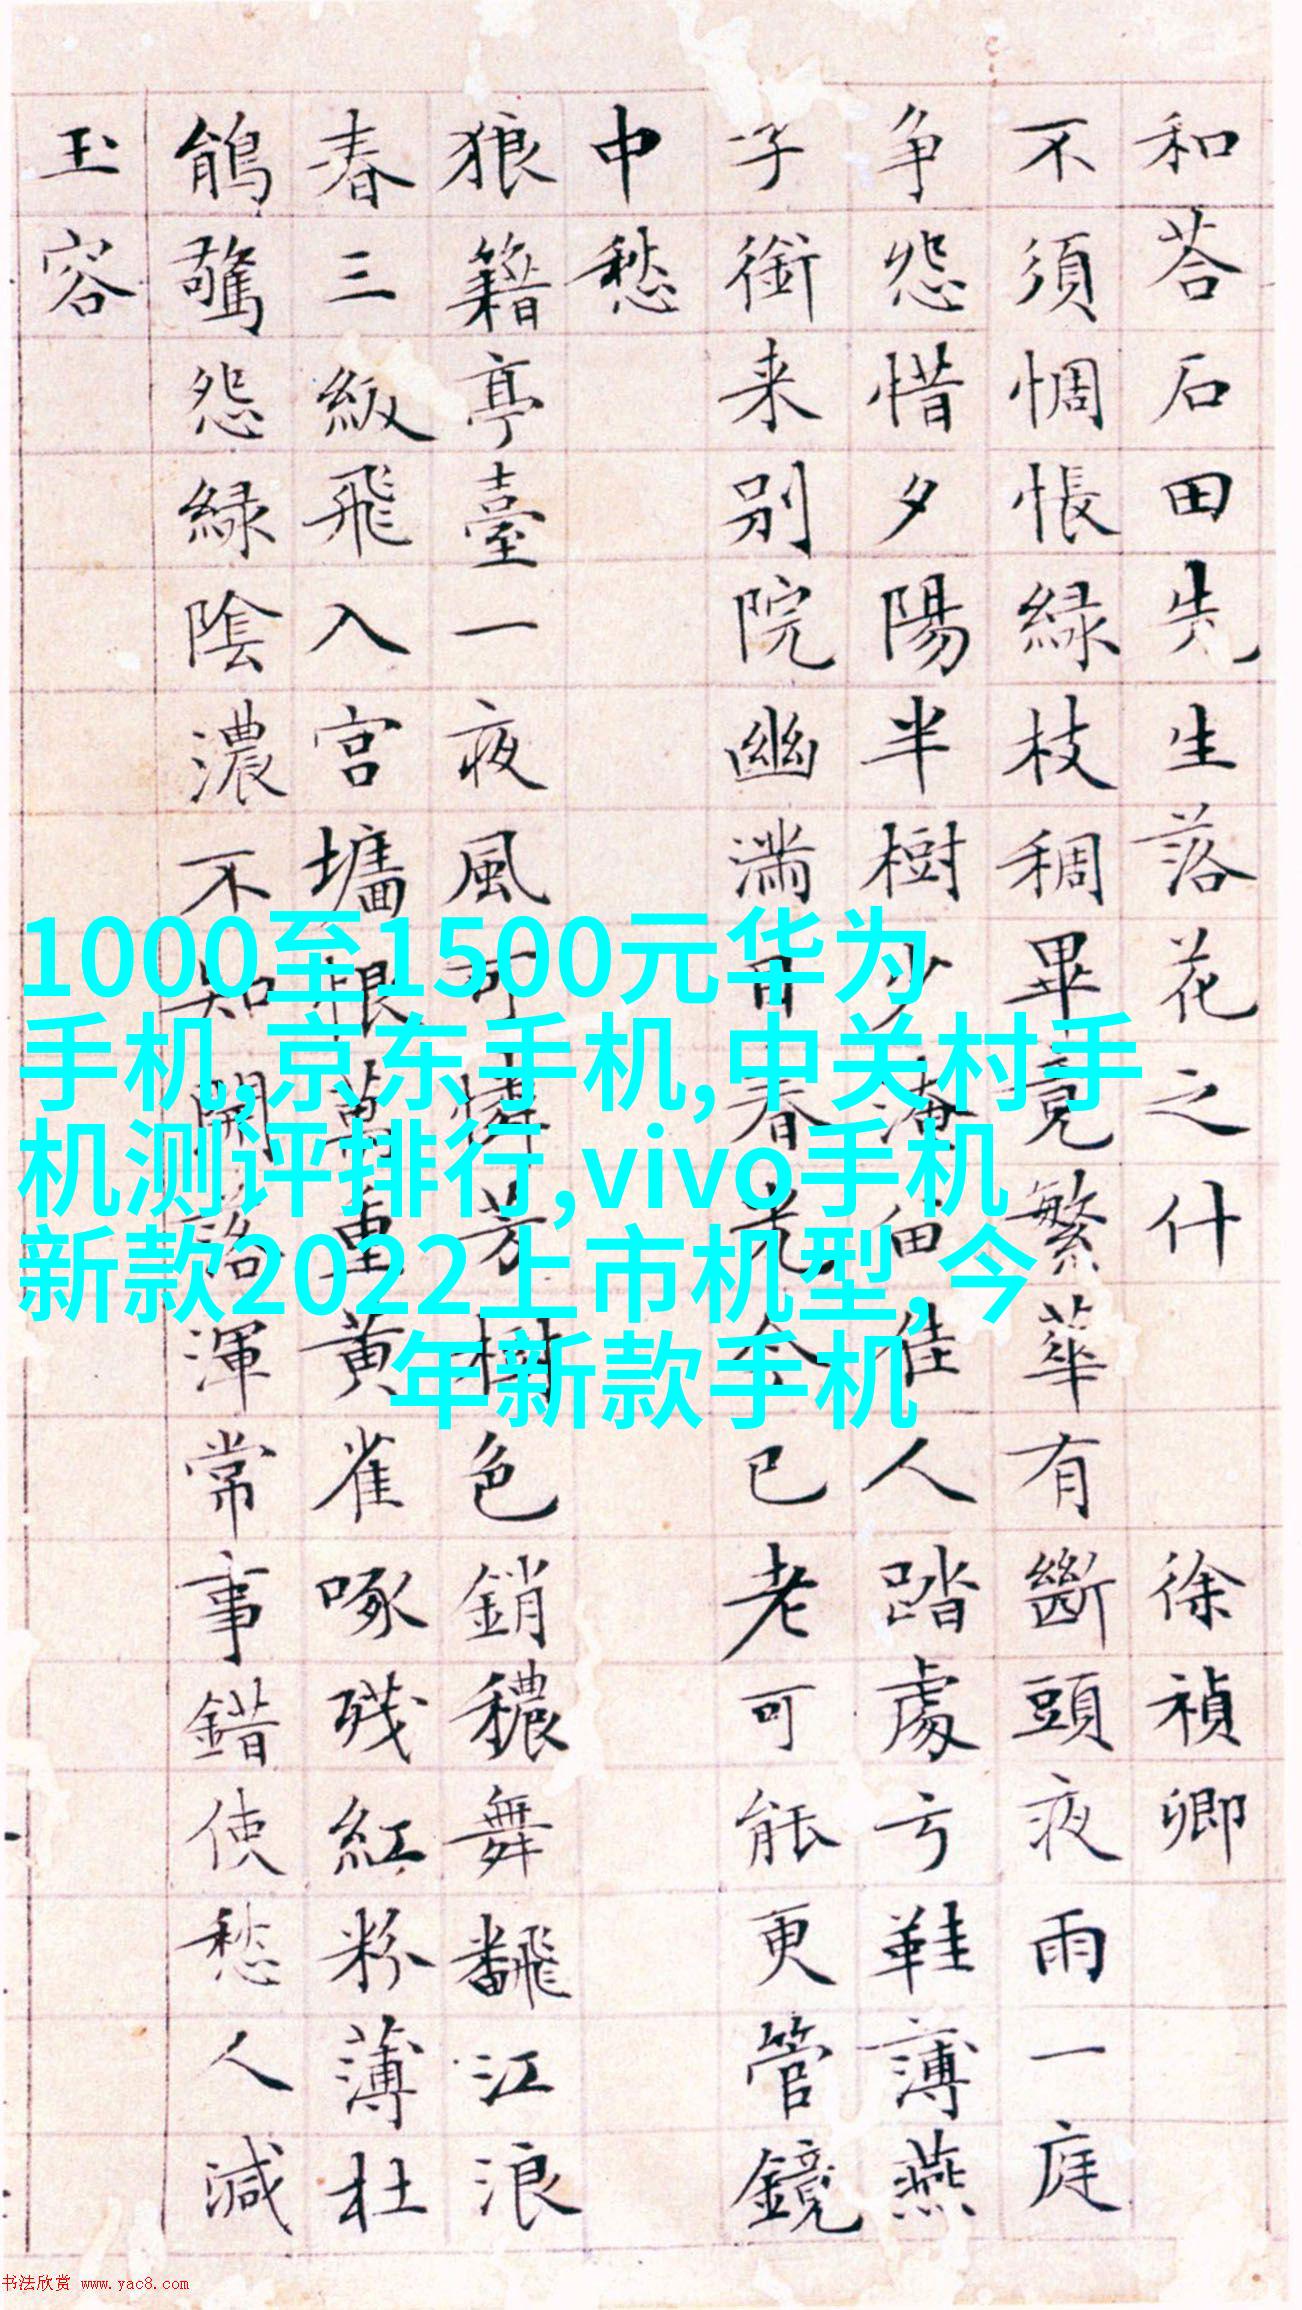 和荅石田先生落花之什 徐禎卿
不須惆悵緑枝稠畢竟繁華有斷頭夜雨一庭
争怨惜夕陽半樹少淹留佳人踏處弓鞋薄燕
子銜来别院幽滿目春光今已老可能更管鏡
中愁
狼籍亭臺一夜風可憐芳樹色銷穠舞飜江浪
春三級飛入宮墻恨萬重黄雀啄殘紅粉薄杜
鵑驚怨緑陰濃不知開落渾常事錯使愁人減
玉容
1000至1500元华为
手机,京东手机,中关村手
机测评排行,vivo手机
新款2022上市机型,今
年新款手机
书法欣赏 www.yac8.com